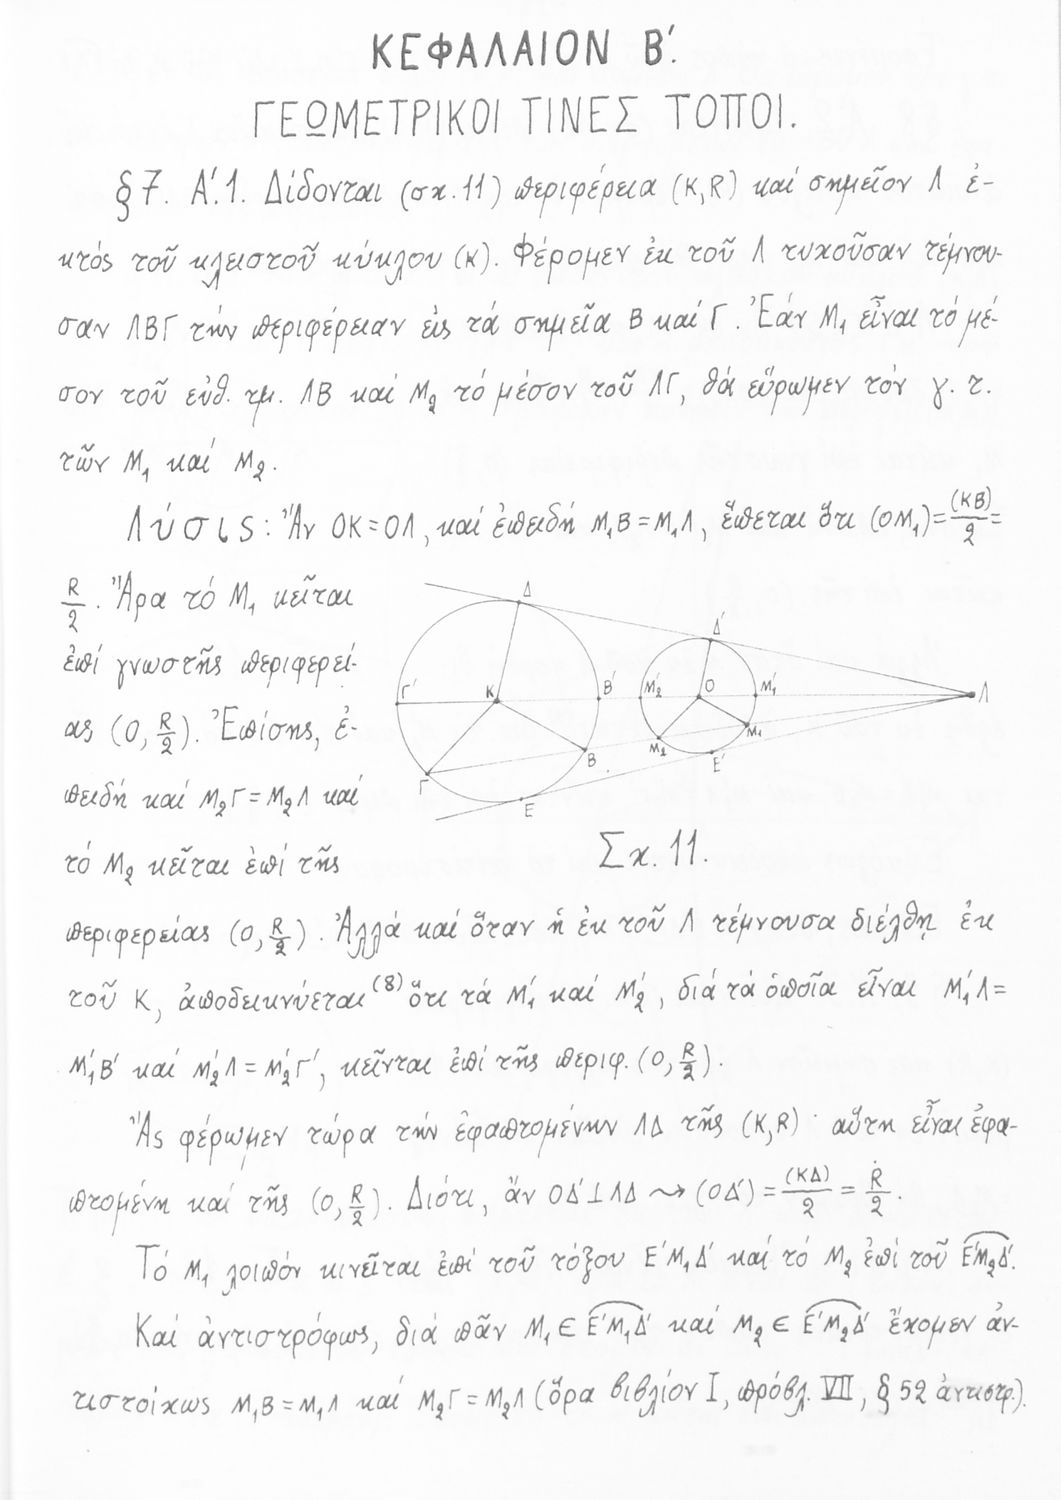 ΚΕΦΑΛΑΙΟΝ Β΄.
ΓΕΩΜΕΤΡΙΚΟΙ ΤΙΝΕΣ ΤΟΠΟΙ.
§7. Α΄.1. Δίδονται (σχ.11) περιφέρεια (Κ,R) καί σημεῖον Λ ἐ-
κτός τοῦ κλειστοῦ κύκλου (κ). Φέρομεν ἐκ τοῦ Λ τυχοῦσαν τέμνου-
σαν ΛΒΓ τήν περιφέρειαν εἰς τά σημεῖα Β καί Γ. Ἐάν Μ₁ εἶναι τό μέ-
σον τοῦ εὐθ. τμ. ΛΒ καί Μ₂ τό μέσον τοῦ ΛΓ, θά εὕρωμεν τόν γ. τ.
τῶν Μ₁ καί Μ₂.
Λύσις: Ἄν ΟΚ=ΟΛ, καί ἐπειδή Μ₁Β=Μ₁Λ, ἕπεται ὅτι (ΟΜ₁)=(ΚΒ)/2=
R/2. Ἄρα τό Μ₁ κεῖται
ἐπί γνωστῆς περιφερεί-
ας (Ο, R/2). Ἐπίσης, ἐ-
πειδή καί Μ₂Γ=Μ₂Λ καί
τό Μ₂ κεῖται ἐπί τῆς
Δ
Δ΄
Γ΄ Κ Β΄ Μ₂΄ Ο Μ₁΄ Λ
Μ₁
Β Μ₂
Γ Ε΄
Ε
Σχ. 11.
περιφερείας (Ο, R/2). Ἀλλά καί ὅταν ἡ ἐκ τοῦ Λ τέμνουσα διέλθῃ ἐκ
τοῦ Κ, ἀποδεικνύεται⁽⁸⁾ ὅτι τά Μ₁΄ καί Μ₂΄, διά τά ὁποῖα εἶναι Μ₁΄Λ=
Μ₁΄Β΄ καί Μ₂΄Λ=Μ₂΄Γ΄, κεῖνται ἐπί τῆς περιφ. (Ο, R/2).
Ἄς φέρωμεν τώρα τήν ἐφαπτομένην ΛΔ τῆς (Κ,R)· αὕτη εἶναι ἐφα-
πτομένη καί τῆς (Ο, R/2). Διότι, ἄν ΟΔ΄⊥ΛΔ ⇝ (ΟΔ΄)=(ΚΔ)/2=R/2.
Τό Μ₁ λοιπόν κινεῖται ἐπί τοῦ τόξου Ε΄Μ₁Δ΄ καί τό Μ₂ ἐπί τοῦ Ε΄Μ₂Δ΄.
Καί ἀντιστρόφως, διά πᾶν Μ₁ ∈ Ε΄Μ₁Δ΄ καί Μ₂ ∈ Ε΄Μ₂Δ΄ ἔχομεν ἀν-
τιστοίχως Μ₁Β=Μ₁Λ καί Μ₂Γ=Μ₂Λ (ὅρα βιβλίον Ι, πρόβλ. VII, §52 ἀντιστρ.).